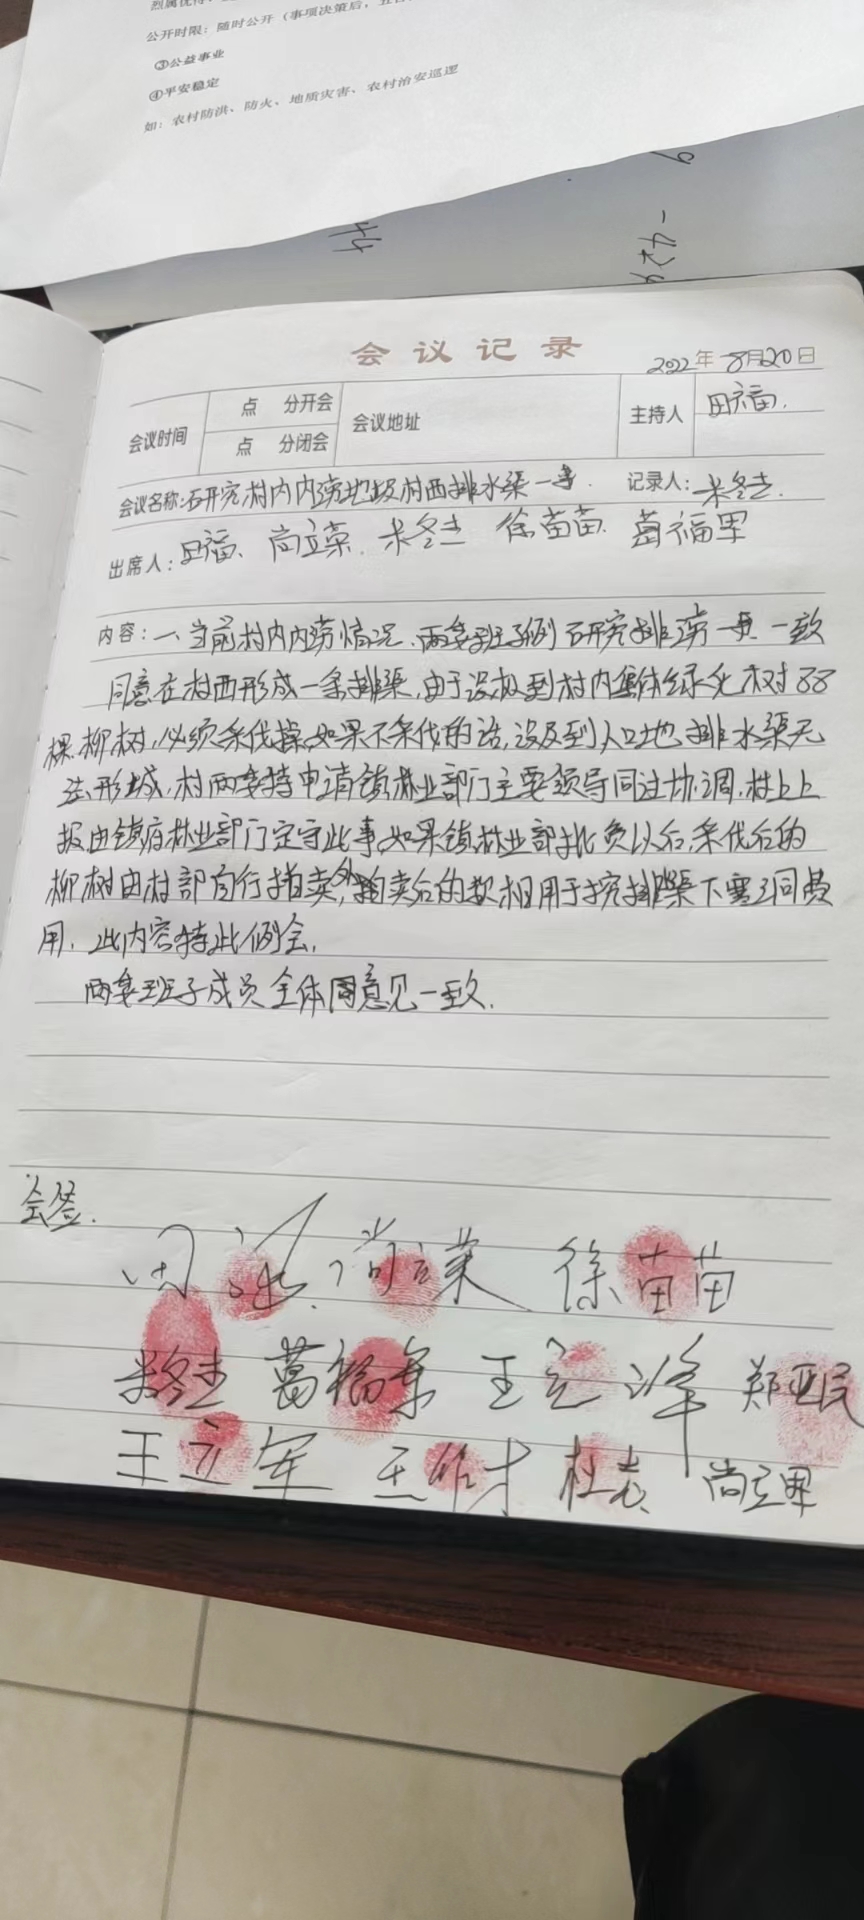 公开时限：随时公开（事项决策后，五日
③公益事业
④平安稳定
如：农村防洪、防火、地质灾害、农村治安巡逻
会议记录
2022年8月20日
会议时间 点 分开会 会议地址 主持人 田福.
点 分闭会
会议名称:研究村内内涝地极村西排水渠一事. 记录人: 米冬志.
出席人: 田福、尚立荣. 米冬志 徐苗苗. 葛福军
内容: 一、当前村内内涝情况.两委班子例研究排涝一事 一致
同意在村西形成一条排渠,由于设极到村内集体绿化树88
棵柳树,必须采伐掉,如果不采伐的话,设及到人口地 排水渠无
法形城,村两委特申请镇林业部门主要领导同注协调.村上上
报由镇府林业部门定守此事,如果镇林业部批负以后,采伐后的
柳树由村部自行拍卖,拍卖后的款相用于挖排渠下需工同费
用. 此内容特此例会.
两委班子成员全体同意见一致.
会签.
田福 尚立荣 徐苗苗
米冬志 葛福军 王立峰 郑亚民
王立军 王 才 杜志 尚立军